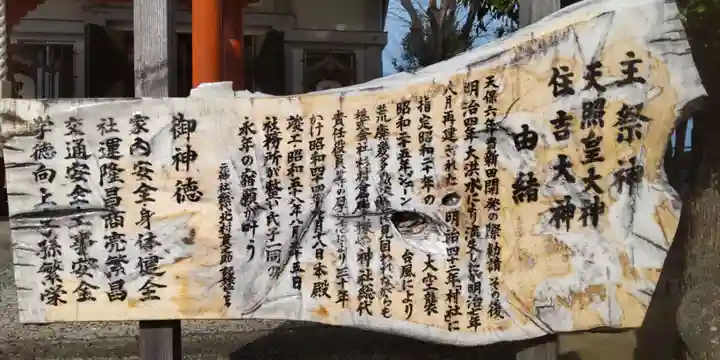 主祭神
天照皇大神
住吉大神
由緒
天保六年吉新田開発の際勧請 その後
明治四年大洪水により流失し 明治七年
八月再建された 明治四十二年村社に
指定 昭和二十年の 大空襲
昭和二十五年ジェーン台風により
荒廃 幾多の 見回われながらも
神社総代
責任役員 により三十年
かけ昭和四十四年 月八日本殿
竣工 昭和五十八年六月五日
社務所が整い氏子一同の
永年の宿願が叶う
御神徳
家内安全身体健全
社運隆昌商売繁昌
交通安全工事安全
学徳向上子孫繁栄